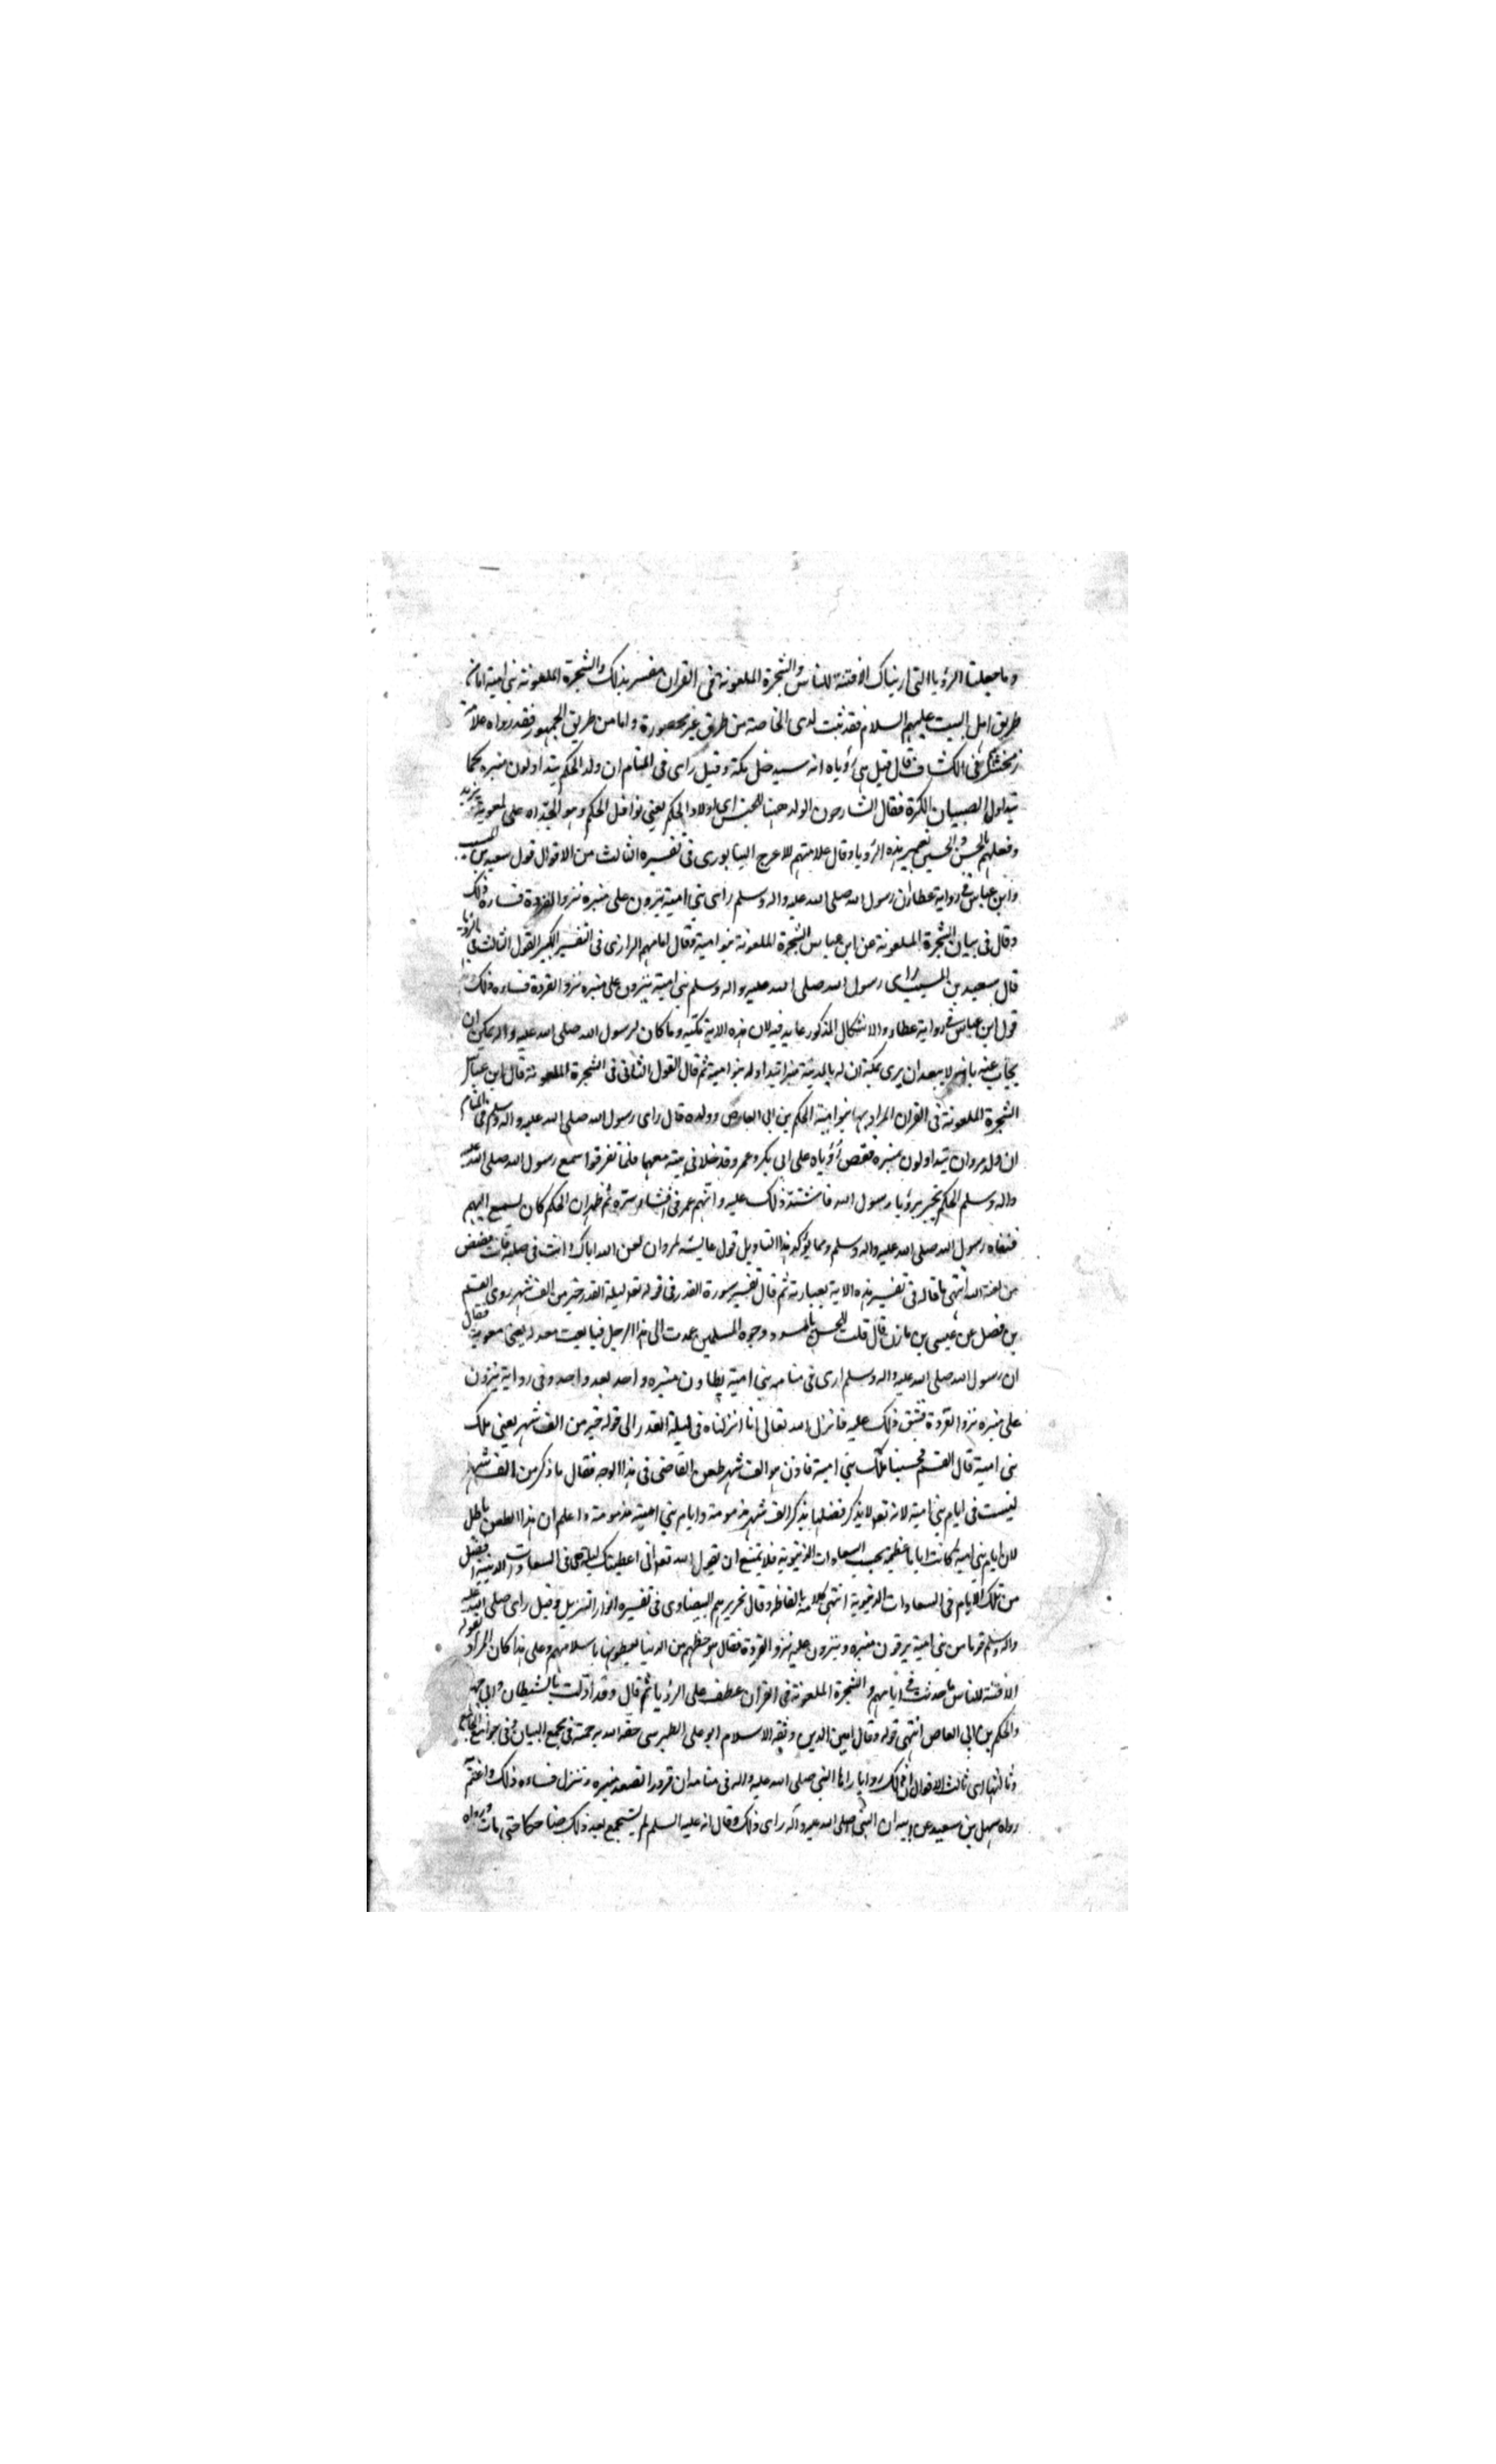 وما جعلنا الرؤيا التي اريناك الا فتنة للناس والشجرة الملعونة في القران مفسر بذلك والشجرة الملعونة بني امية اما من
طريق اهل البيت عليهم السلام فقد ثبت لدى الخاصة من طرق غير محصورة واما من طريق الجمهور فقد رواه علامة
زمخشري في الكشاف قال قيل هي رؤياه انه سيدخل مكة وقيل راى في المنام ان ولد الحكم يتداولون منبره كما
يتداول الصبيان الكرة فقال الشارحون الولد ههنا للجنس اي اولاد الحكم يعني نوافل الحكم وهو الجد اه على لمعوية يزيد
وفعلهم بالحسن والحسين تعبير هذه الرؤيا وقال علامتهم للاعرج النيسابوري في تفسيره الثالث من الاقوال قول سعيد بن المسيب
وابن عباس في رواية عطا ان رسول الله صلى الله عليه واله وسلم راى بني امية ينزون على منبره نزو القردة فساءه ذلك
وقال في بيان الشجرة الملعونة عن ابن عباس الشجرة الملعونة بنو امية وقال امامهم الرازي في التفسير الكبير القول الثالث في الرؤيا
قال سعيد بن المسيب راى رسول الله صلى الله عليه واله وسلم بني امية ينزون على منبره نزو القردة فساءه ذلك وهذا
قول ابن عباس في رواية عطاء والاشكال المذكور عايد فيه لان هذه الاية مكية وما كان لرسول الله صلى الله عليه واله يمكن ان
يجاب عنه بانه لا يبعد ان يرى بمكة ان له بالمدينة منبرا تتداوله بنو امية ثم قال القول الثاني في الشجرة الملعونة قال ابن عباس
الشجرة الملعونة في القران المراد بها بنو امية الحكم بن ابي العاص وولده قال راى رسول الله صلى الله عليه واله وسلم في المنام
ان ولد مروان يتداولون منبره فقص رؤياه على ابي بكر وعمر وقد خلا في بيته معهما فلما تفرقوا سمع رسول الله صلى الله عليه
واله وسلم الحكم يخبر برؤيا رسول الله فاشتد ذلك عليه واتهم عمر في افشاء سره ثم ظهر ان الحكم كان يسمع اليهم
فنفاه رسول الله صلى الله عليه واله وسلم ومما يؤكد هذا التاويل قول عايشة لمروان لعن الله اباك وانت في صلبه فانت بعض
من لعنة الله انتهى ما قاله في تفسير هذه الاية بعبارته ثم قال تفسير سورة القدر في قوله تعه ليلة القدر خير من الف شهر روى القسم
بن فضل عن عيسى بن مازن قال قلت للحسن يا مسود وجوه المسلمين عمدت الى هذا الرجل فبايعت معه يعني معوية فقال
ان رسول الله صلى الله عليه واله وسلم ارى في منامه بني امية يطاون منبره واحد بعد واحد وفي رواية ينزون
على منبره نزو القردة فشق ذلك عليه فانزل الله تعالى انا انزلناه في ليلة القدر الى قوله خير من الف شهر يعني ملك
بني امية قال القسم فحسبنا ملك بني امية فاذن هو الف شهر طعن القاضي في هذا الوجه فقال ما ذكر من الف شهر
ليست في ايام بني امية لانه تعه لا يذكر فضلها بذكر الف شهر مذمومة وايام بني امية مذمومة واعلم ان هذا الطعن باطل
لان ايام بني امية كانت اياما عظيمة بحسب السعادات الدنيوية فلا يمتنع ان يقول الله تعه اني اعطيتك ليلة هي في السعادات الدينية افضل
من تلك الايام في السعادات الدنيوية انتهى كلامه بالفاظه وقال نحريرهم البيضاوي في تفسيره انوار التنزيل وقيل راى صلى الله عليه
واله وسلم قوما من بني امية يرقون منبره وينزون عليه نزو القردة فقال هو حظهم من الدنيا يعطونها باسلامهم وعلى هذا كان المراد بقوله
الا فتنة للناس ما حدث في ايامهم والشجرة الملعونة في القران عطف على الرؤيا ثم قال وقد اولت بالشيطان وابي جهل
والحكم بن ابي العاص انتهى قوله وقال امين الدين وثقة الاسلام ابو علي الطبرسي حفه الله برحمته في مجمع البيان وفي جوامع الجامع
وثالثها اي ثالث الاقوال ان ذلك رؤيا راها النبي صلى الله عليه واله في منامه ان قرودا تصعد منبره وتنزل فساءه ذلك واغتم
رواه سهل بن سعيد عن ابيه ان النبي صلى الله عليه واله راى ذلك وقال انه عليه السلم لم يستجمع بعد ذلك ضاحكا حتى مات ورواه